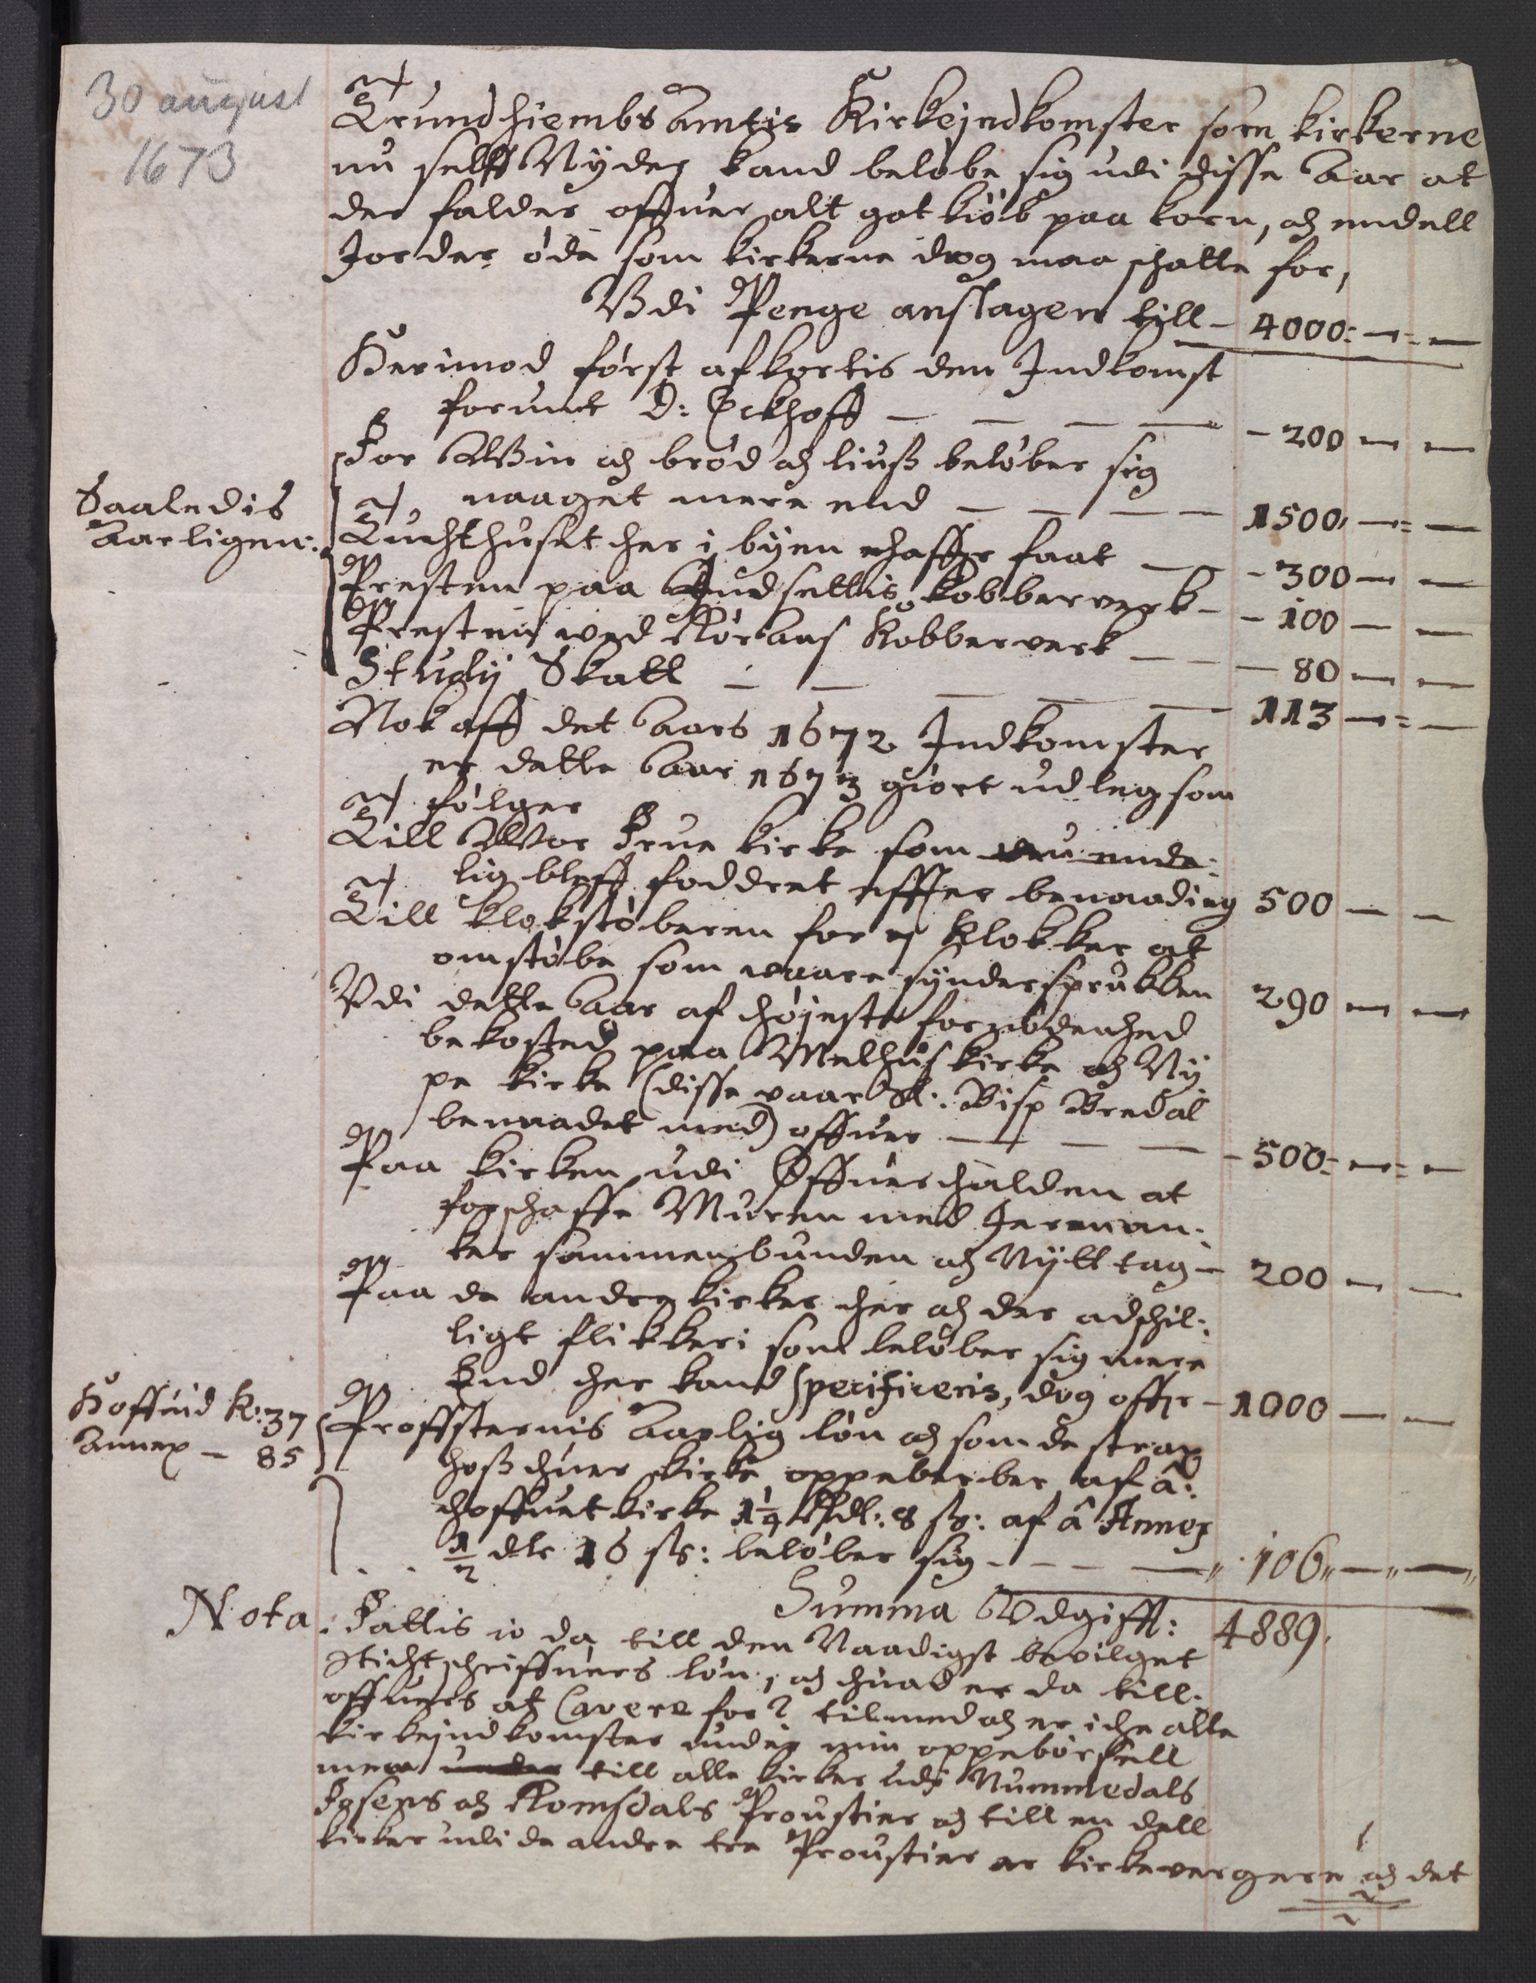 30 august
1673
Trundhiembs Amtis Kirkejndkomster som kirkerne
nu selff Nyder kand beløbe sig udi disse Aar at
der falder offuer alt got kiøb paa korn, og endell
Jorder øde som kirkerne dog maa schatte for,
Vdi Penge anslagen till - 4000:
Herimod først afkortis den Indkomst
forundt D: Eckhoff - 200
For Win og brød og liuß beløber sig
Saaledis
Aarligen:
naaget mere end 1500
Tuchthuset her i byen haffr faat - 300
Presten paa Indsettis kobberverk - 100
Presten ved Røraas Kobberverk - 80
Studij Skatt 113
Nok aff det Aars 1672 Indkomster
er dette Aar 1673 giort udleg som
følger
Till Wor Frue kirke som endе-
lig bleff foddret effter benaading 500
Till klokstøberen for klokker at
omstøbe som vaare sønderspruken 290
Vdi dette Aar af højeste fornødenhed
bekosted paa Melhus kirke og Ny
pe kirke (disse vaar Sl: Bisp Bredal
benaadet med) offuer - 500
Paa kirken udi Offuerhalden at
forschaffe Muren med Jernan-
ker sammenbunden og Nytt tag - 200
Paa de andre kirker her og der adschil-
ligt flikkeri som beløber sig mere
End her kand specificeris, dog offr - 1000
Hoffuid K: 37
Annex - 85
Proffsternis Aarlig løn og som de strax
hoß huer kirke oppeberber af â:
hoffuet kirke 1¼ Rdl: 8 ß: af â Annex
½ dlr 16 ß: beløber sig - 106
Summa Vdgifft: 4889
Nota: Fattis io da till den Naadigst bevilget
Stichtschriffuers løn, og huad er da till-
offuers at Cavere for? tilmed og er iche alle
kirkejndkomster under min oppebørsell
men till alle kirker udj Nummedals
Fosens og Romsdals Proustier og till en dell
kirker udi de andre tre Proustier er kirkevergere og det